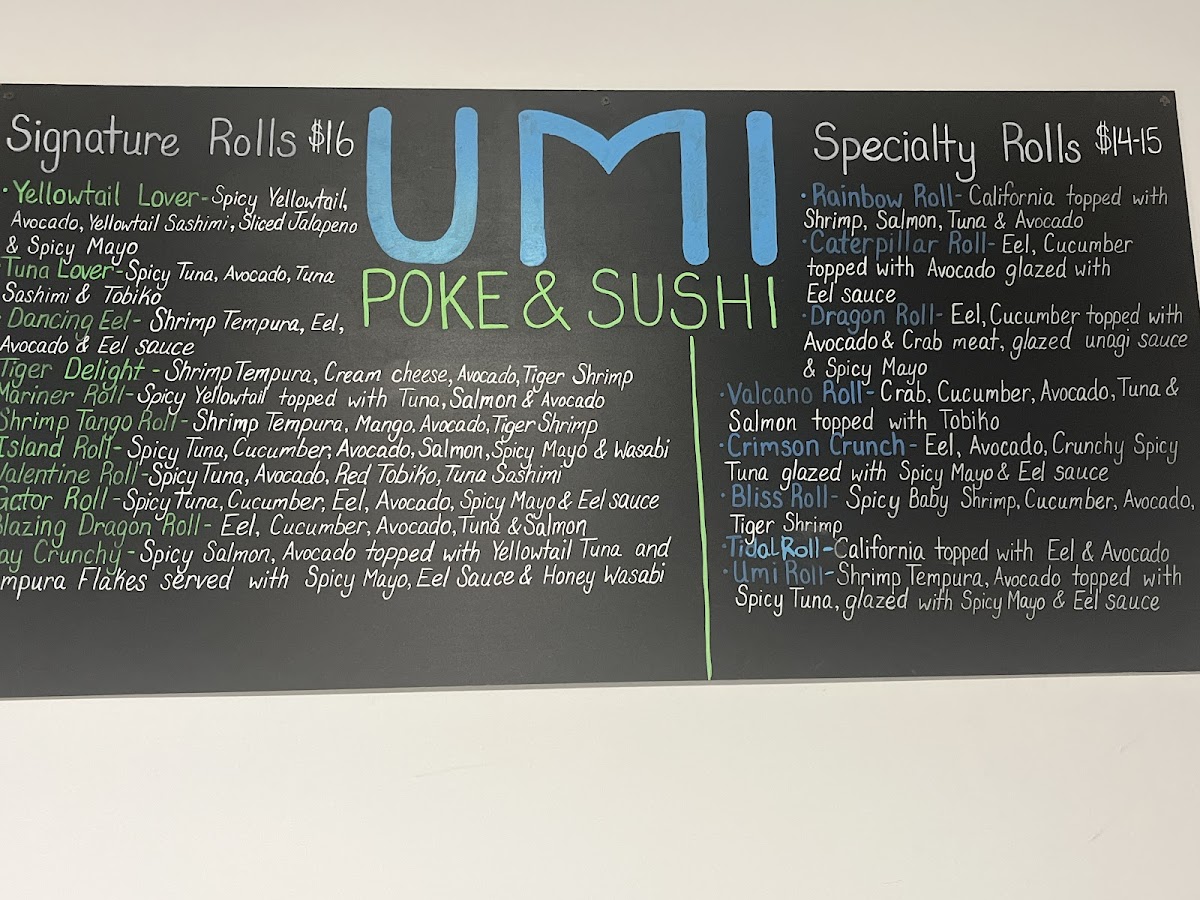 Signature Rolls $16
· Yellowtail Lover - Spicy Yellowtail,
Avocado, Yellowtail Sashimi, Sliced Jalapeno
& Spicy Mayo
Tuna Lover - Spicy Tuna, Avocado, Tuna
Sashimi & Tobiko
· Dancing Eel - Shrimp Tempura, Eel,
Avocado & Eel sauce
Tiger Delight - Shrimp Tempura, Cream cheese, Avocado, Tiger Shrimp
Mariner Roll - Spicy Yellowtail topped with Tuna, Salmon & Avocado
Shrimp Tango Roll - Shrimp Tempura, Mango, Avocado, Tiger Shrimp
Island Roll - Spicy Tuna, Cucumber, Avocado, Salmon, Spicy Mayo & Wasabi
Valentine Roll - Spicy Tuna, Avocado, Red Tobiko, Tuna Sashimi
Gator Roll - Spicy Tuna, Cucumber, Eel, Avocado, Spicy Mayo & Eel sauce
Blazing Dragon Roll - Eel, Cucumber, Avocado, Tuna & Salmon
ay Crunchy - Spicy Salmon, Avocado topped with Yellowtail Tuna and
mpura Flakes served with Spicy Mayo, Eel Sauce & Honey Wasabi
UMI
POKE & SUSHI
Specialty Rolls $14-15
· Rainbow Roll - California topped with
Shrimp, Salmon, Tuna & Avocado
· Caterpillar Roll - Eel, Cucumber
topped with Avocado glazed with
Eel sauce
· Dragon Roll - Eel, Cucumber topped with
Avocado & Crab meat, glazed unagi sauce
& Spicy Mayo
· Valcano Roll - Crab, Cucumber, Avocado, Tuna &
Salmon topped with Tobiko
· Crimson Crunch - Eel, Avocado, Crunchy Spicy
Tuna glazed with Spicy Mayo & Eel sauce
· Bliss Roll - Spicy Baby Shrimp, Cucumber, Avocado,
Tiger Shrimp
· Tidal Roll - California topped with Eel & Avocado
· Umi Roll - Shrimp Tempura, Avocado topped with
Spicy Tuna, glazed with Spicy Mayo & Eel sauce